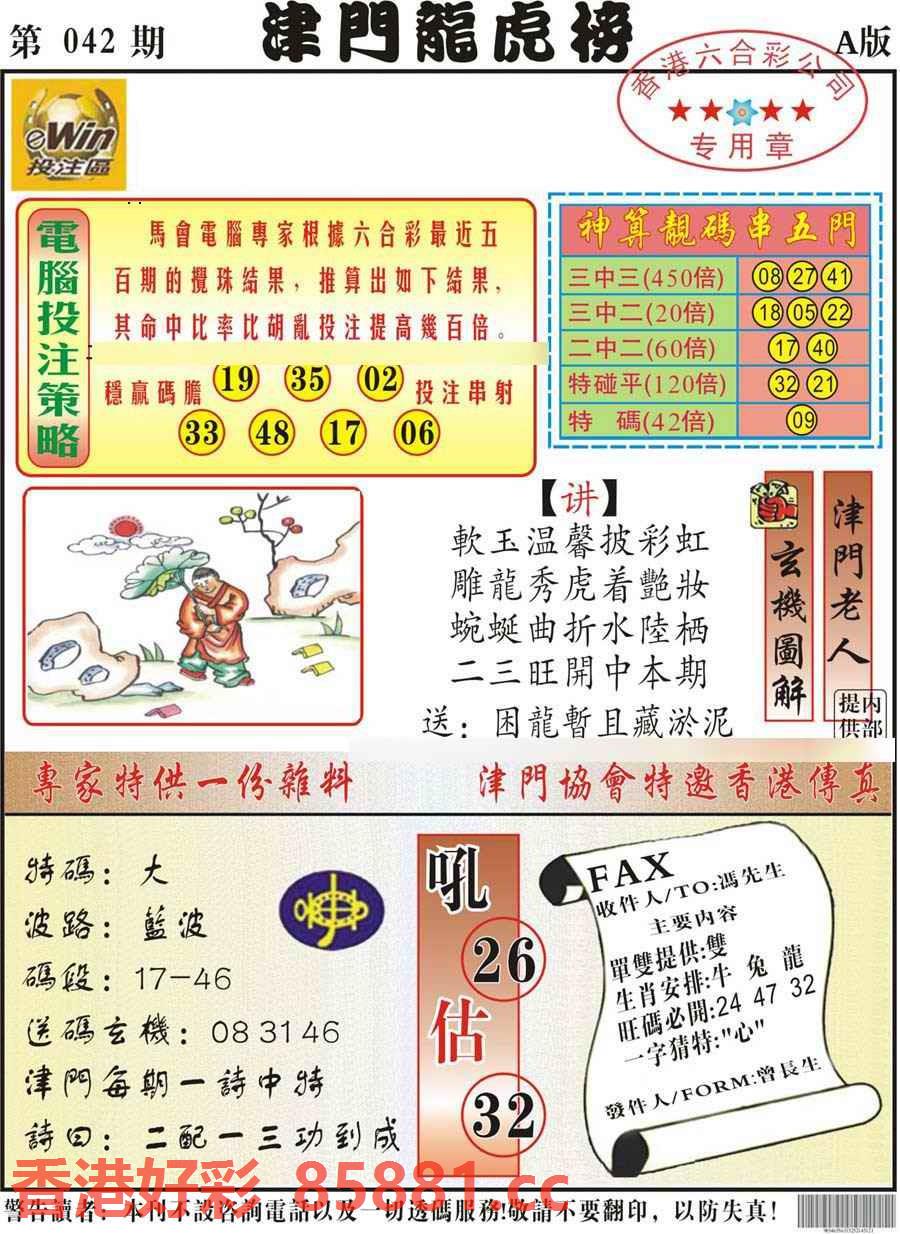 第 042 期
津門龍虎榜
A版
香港六合彩公司
专用章
eWin
投注區
電腦投注策略
馬會電腦專家根據六合彩最近五
百期的攪珠結果，推算出如下結果，
其命中比率比胡亂投注提高幾百倍。
穩贏碼膽 19 35 02 投注串射
33 48 17 06
神算靚碼串五門
三中三(450倍) 08 27 41
三中二(20倍) 18 05 22
二中二(60倍) 17 40
特碰平(120倍) 32 21
特 碼(42倍) 09
【讲】
軟玉温馨披彩虹
雕龍秀虎着艷妝
蜿蜒曲折水陸栖
二三旺開中本期
送：困龍暫且藏淤泥
玄機圖解
津門老人
内部提供
專家特供一份雜料
津門協會特邀香港傳真
特碼：大
波路：藍波
碼段：17-46
送碼玄機：08 31 46
津門每期一詩中特
詩曰：二配一三功到成
吼
26
估
32
FAX
收件人/TO:馮先生
主要内容
單雙提供:雙
生肖安排:牛 兔 龍
旺碼必開:24 47 32
一字猜特:"心"
發件人/FORM:曾長生
香港好彩 85881.cc
警告讀者：本刊不設咨詢電話以及一切透碼服務!敬請不要翻印，以防失真!